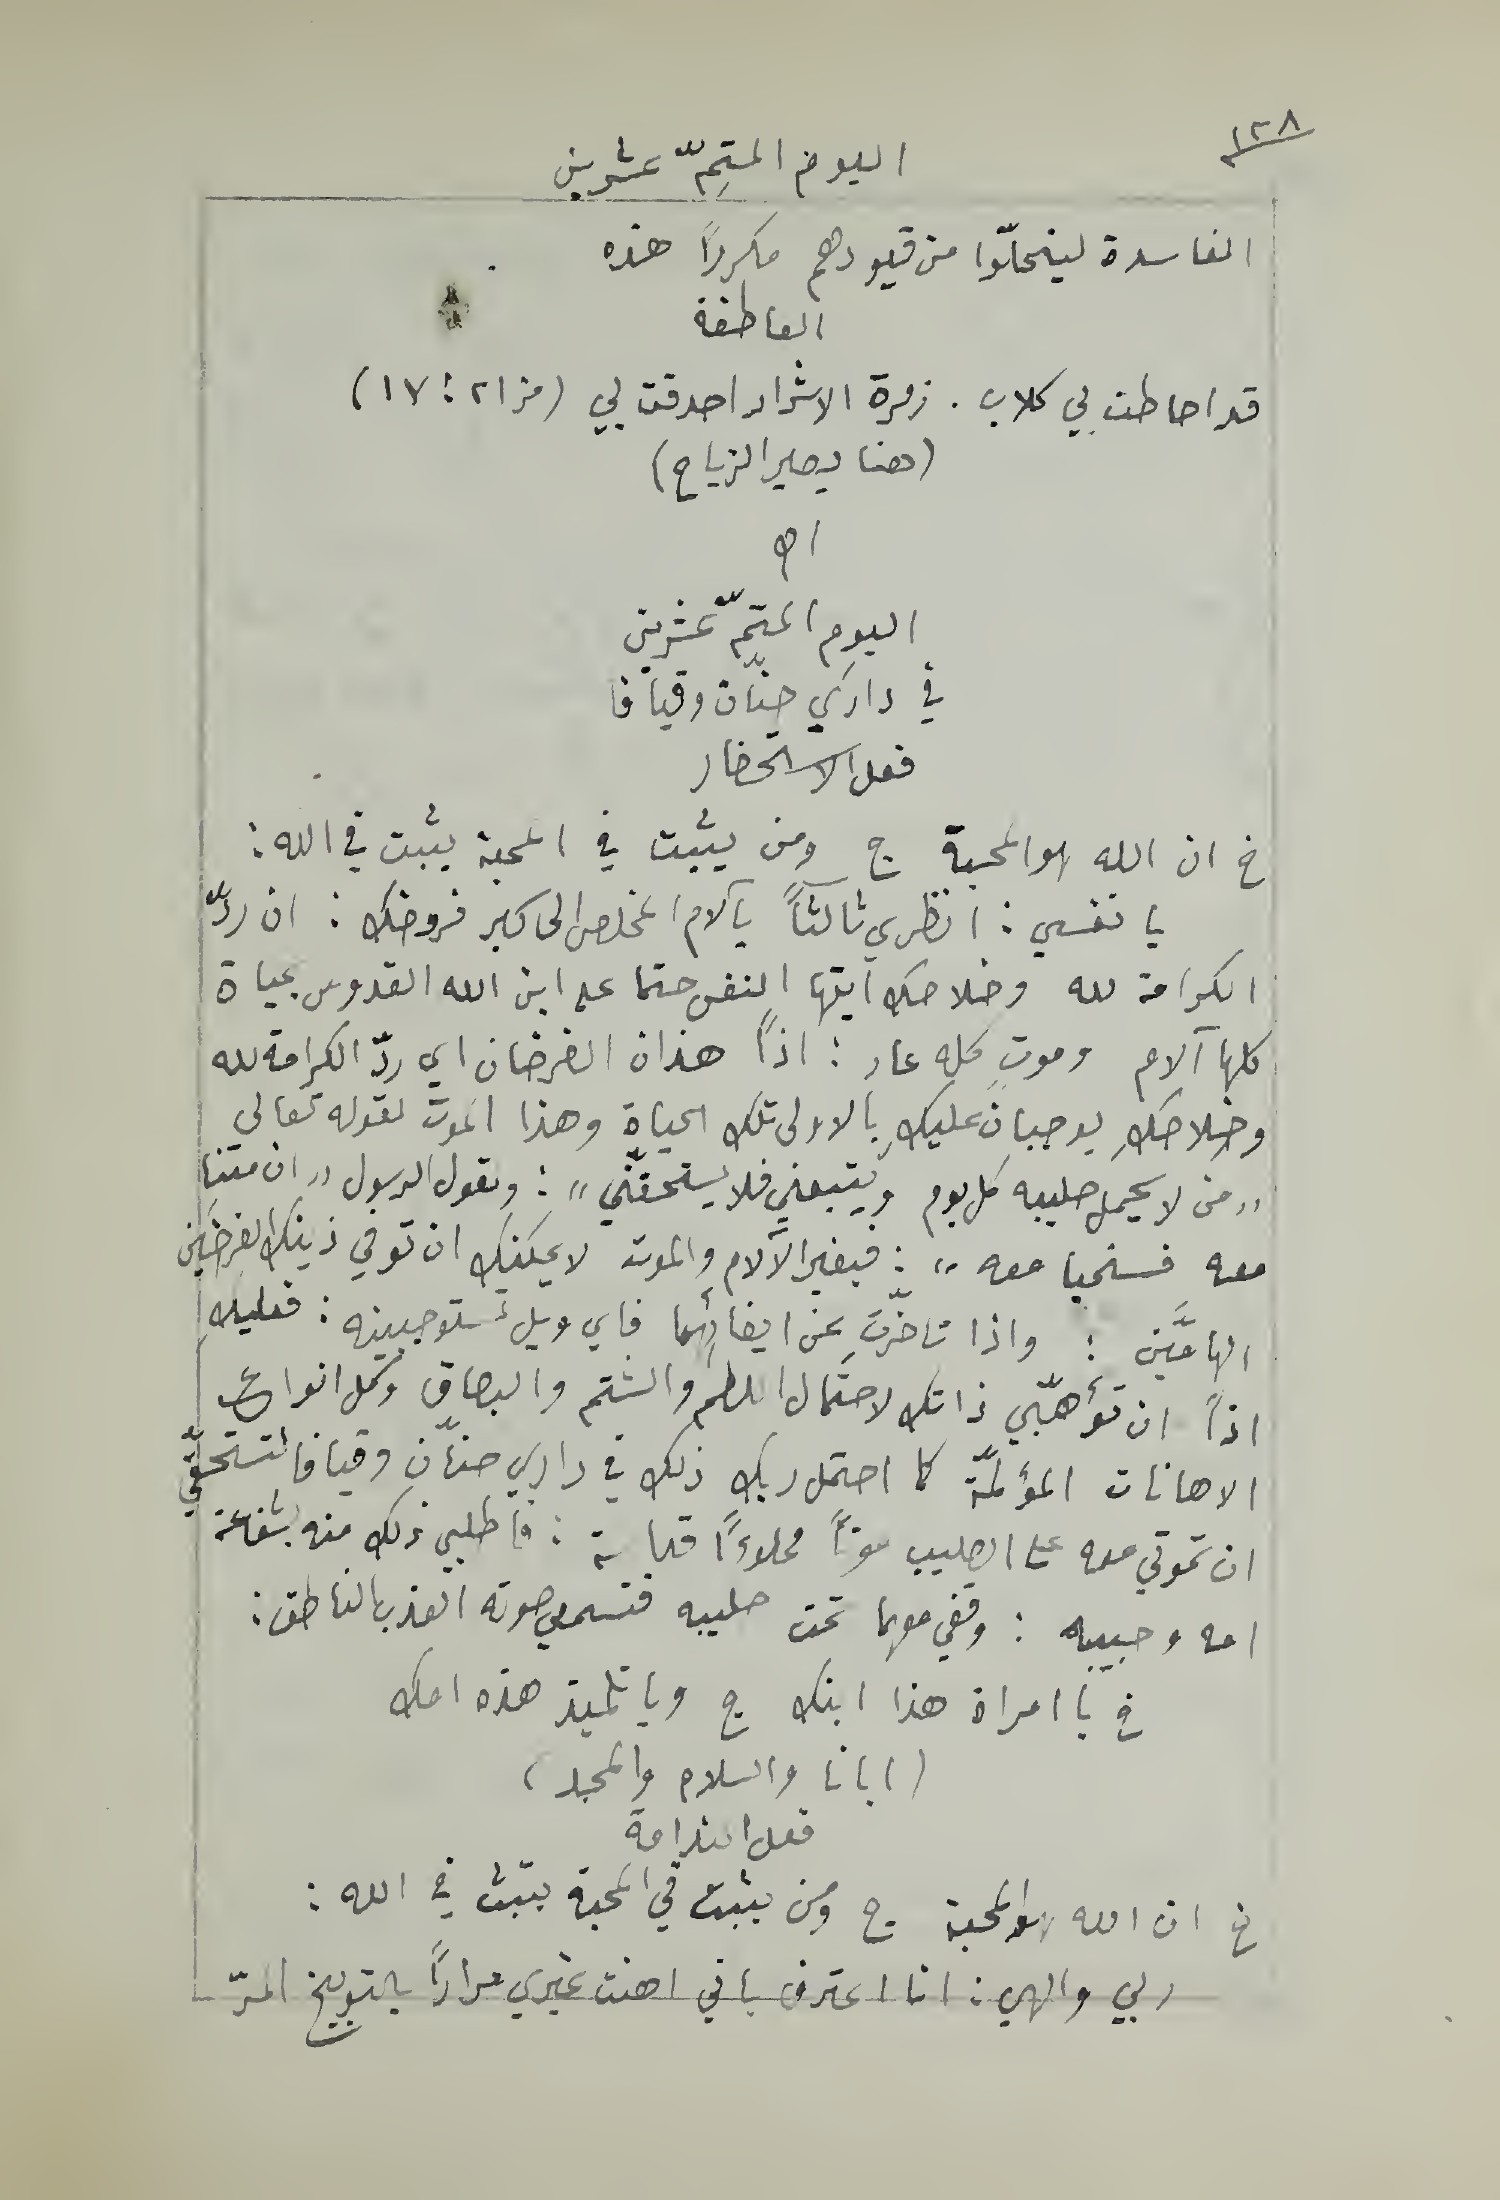 ١٣٨
اليوم المتِمّ عشرين
الفاسدة لينحلّوا من قيودهم مكرراً هذه
العاطفة
قد احاطت بي كلاب . زمرة الاشرار احدقت بي (مز ٢١ : ١٧)
(هنا يصير الزياح)
اه
اليوم المتمّ عشرين
في دارَي حنّان وقيافا
فعل الاستحضار
خ ان الله هو المحبة ج ومن يثبت في المحبة يثبت في الله :
يا نفسي : انظري ثالثاً بآلام المخلص الى اكبر فروضك : ان ردّ
الكرامة لله وخلاصك ايتها النفس حتما على ابن الله القدوس بحياة
كلها آلام وموتٍ كله عار : اذاً هذان الفرضان اي ردّ الكرامة لله
وخلاصكِ يوجبان عليكِ بالاولى تلك الحياة وهذا الموت لقوله تعالى
„ من لا يحمل صليبه كل يوم ويتبعني فلا يستحقّني „ : ولقول الرسول „ ان متنا
معه فسنحيا معه „ : فبغير الآلام والموت لا يمكنك ان توفي ذينك الفرضَين
الهامَّين : واذا تاخّرتِ عن ايفائهما فاي ويل تستوجبينه : فعليكِ
اذاً ان تؤَهّبي ذاتك لاحتمال اللطم والشتم والبصاق وكل انواع
الاهانات المؤلمّة كما احتمل ربك ذلك في دارَي حنّان وقيافا لتستحقّي
ان تموتي معه على الصليب موتاً مملوءًا قداسة : فاطلبي ذلك منه بشفاعة
امه وحبيبه : وقفي معهما تحت صليبه فتسمعي صوته العذب الناطق :
خ يا امراة هذا ابنك ج ويا تلميذ هذه امك
(ابانا والسلام والمجد)
فعل الندامة
خ ان الله هو المحبة ج ومن يثبت في المحبة يثبت في الله :
ربي والهي : انا اعترف باني اهنت غيري مراراً بالتوبيخ المرّ